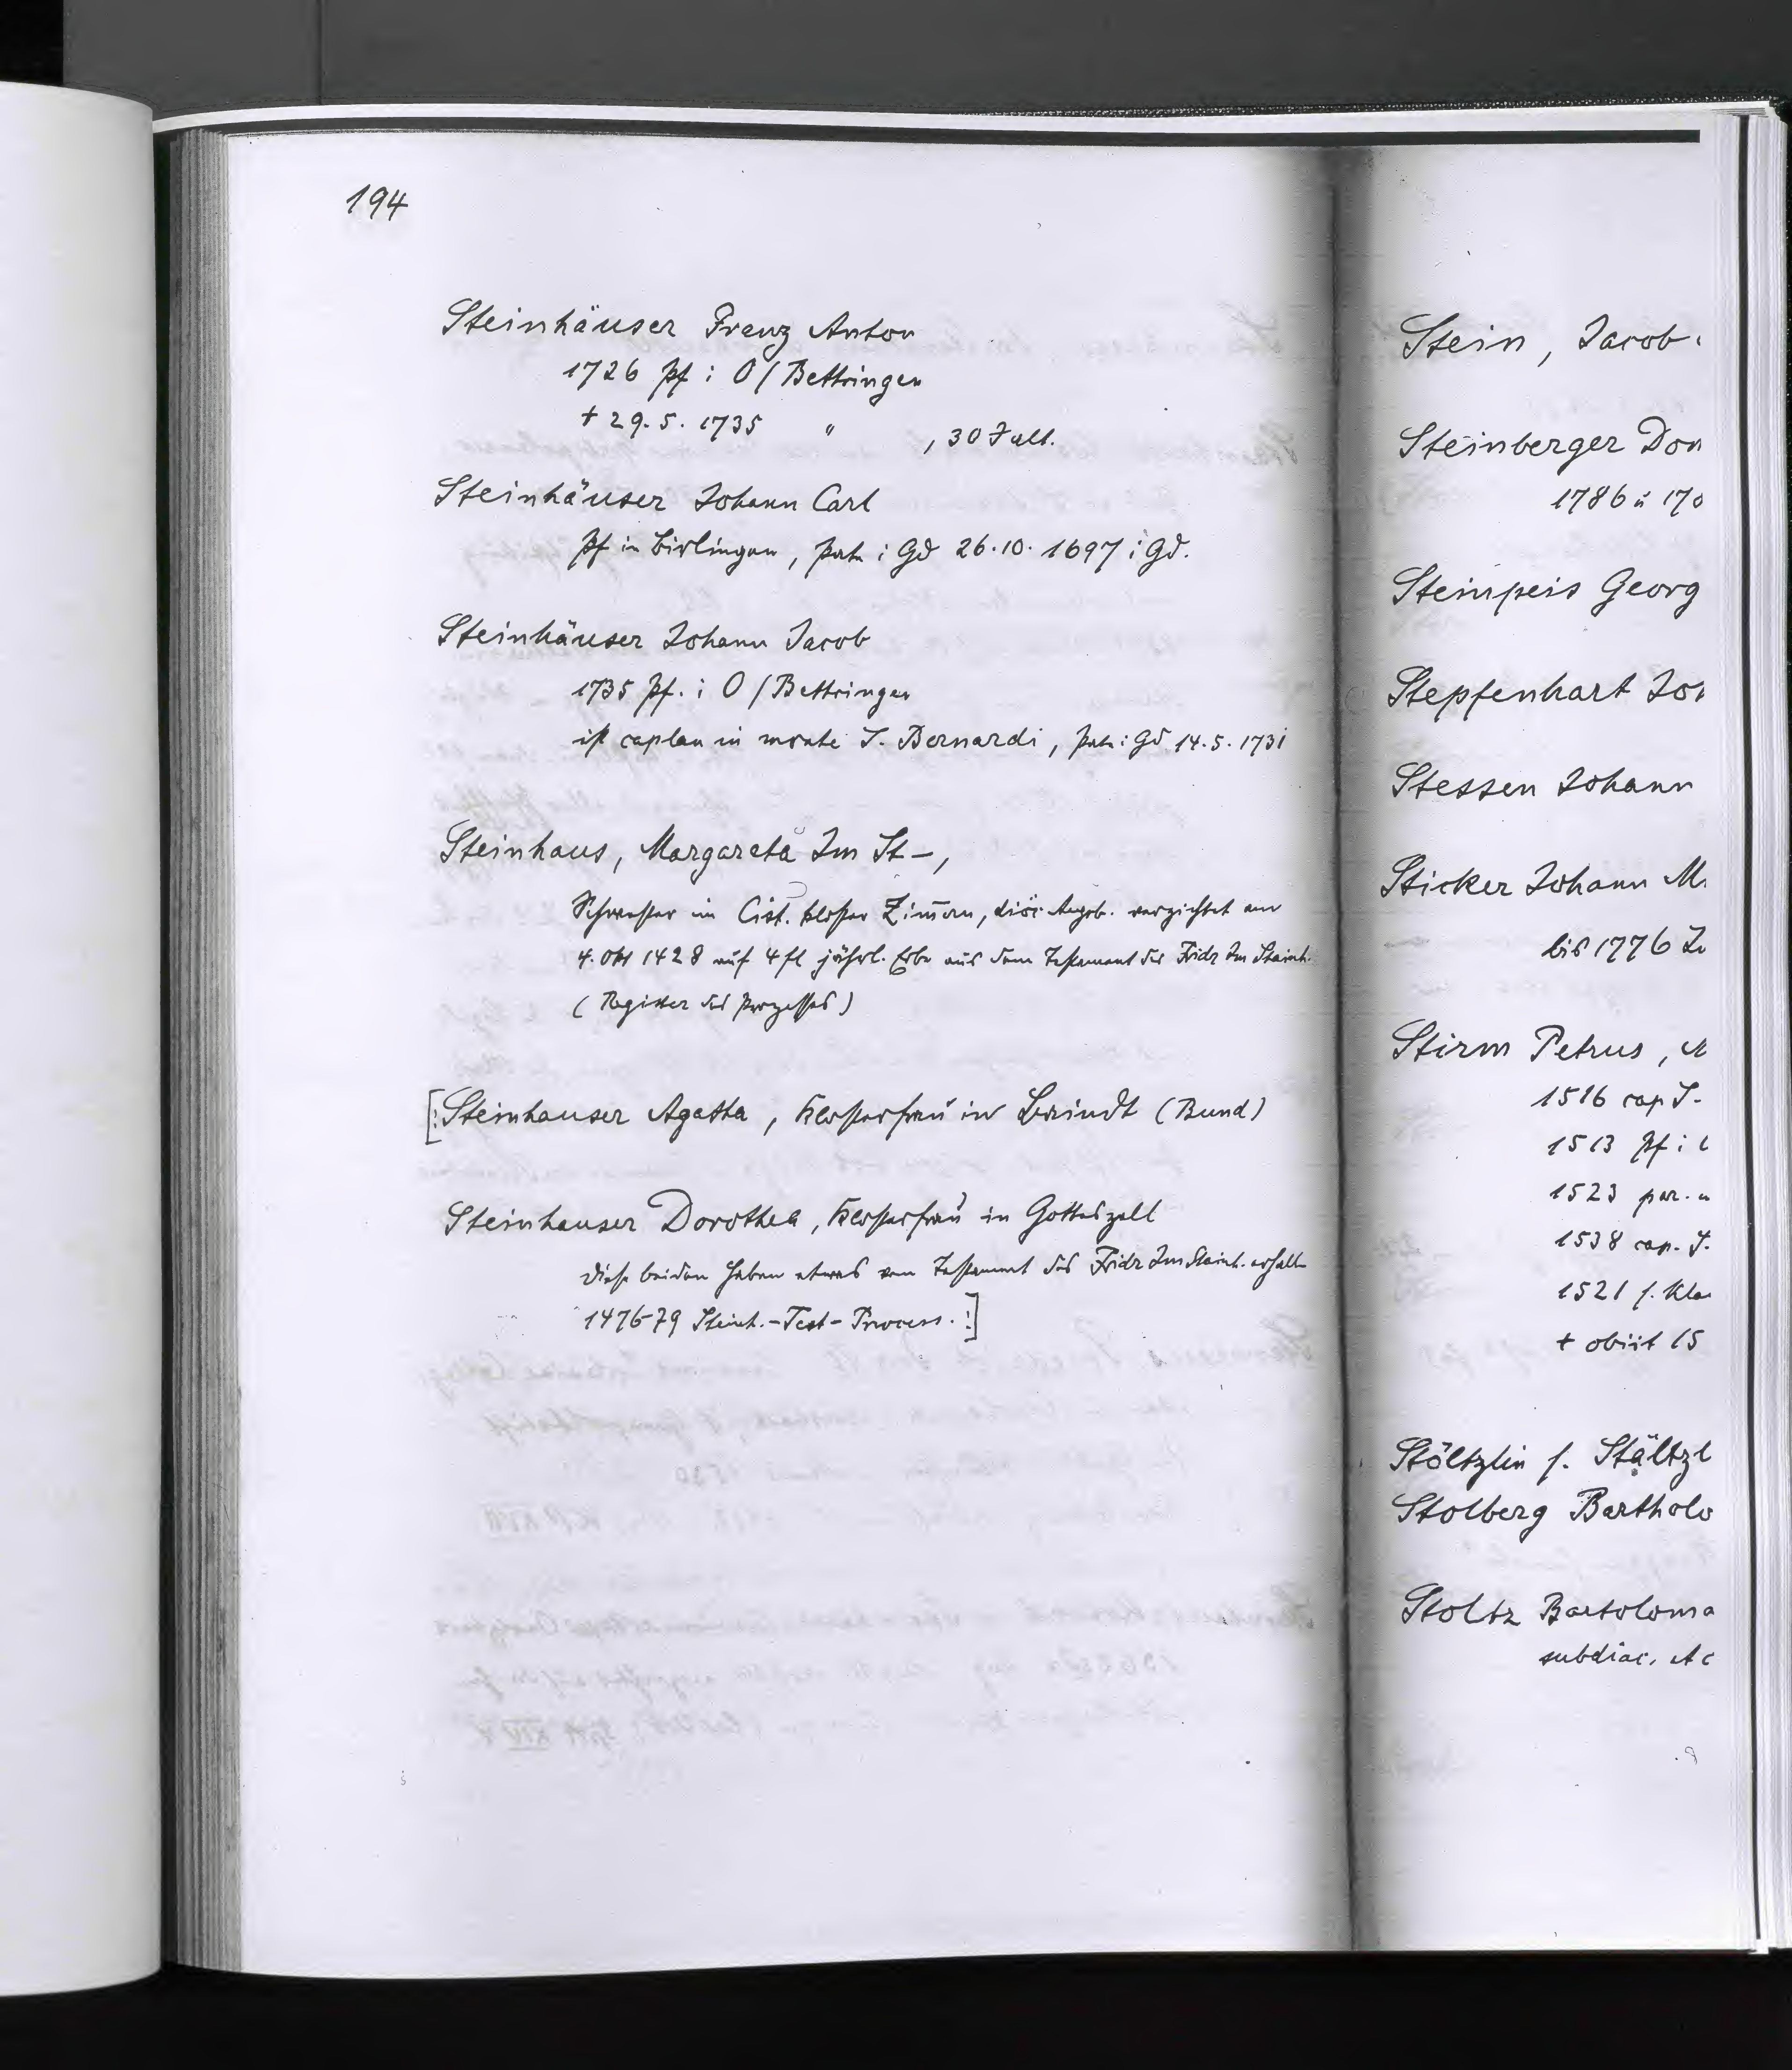 194
Steinhäuser Franz Anton
1726 Pf i O/Bettringen
+ 29.5.1735 " , 30 J alt.
Steinhäuser Johann Carl
Pf in Birlingen, Pate i Gd 26.10.1697 i Gd.
Steinhäuser Johann Jacob
1735 Pf. i O/Bettringen
ist caplan in monte S. Bernardi, Pate i Gd 14.5.1731
Steinhaus, Margareta Im St-,
Schwester im Cist. Kloster Zimmern, diöc. Augsb. verzichtet am
4. Okt 1428 auf 4 fl jährl. Erbe aus dem Testament des Fridr Im Steinh.
(Register des Prozesses)
[: Steinhauser Agatha, Klosterfrau in (Bund)
Steinhauser Dorothea, Klosterfrau in Gotteszell
diese beiden haben etwas vom Testament des Fridr Im Steinh. erhalten
1476-79 Steinh.-Test-Process. :]
Stein, Jacob
Steinberger Don
1786 u 170
Steinpeis Georg
Stepfenhart Jo
Stessen Johann
Sticker Johann M
bis 1776
Stirm Petrus,
1516 cap S.
1513 Pf i
1523 par.
1538 cap. S.
1521 s. Kla
+ obiit 15
Stöltzlin s. Stältzl
Stolberg Bartholo
Stoltz Bartoloma
subdiac. Ac